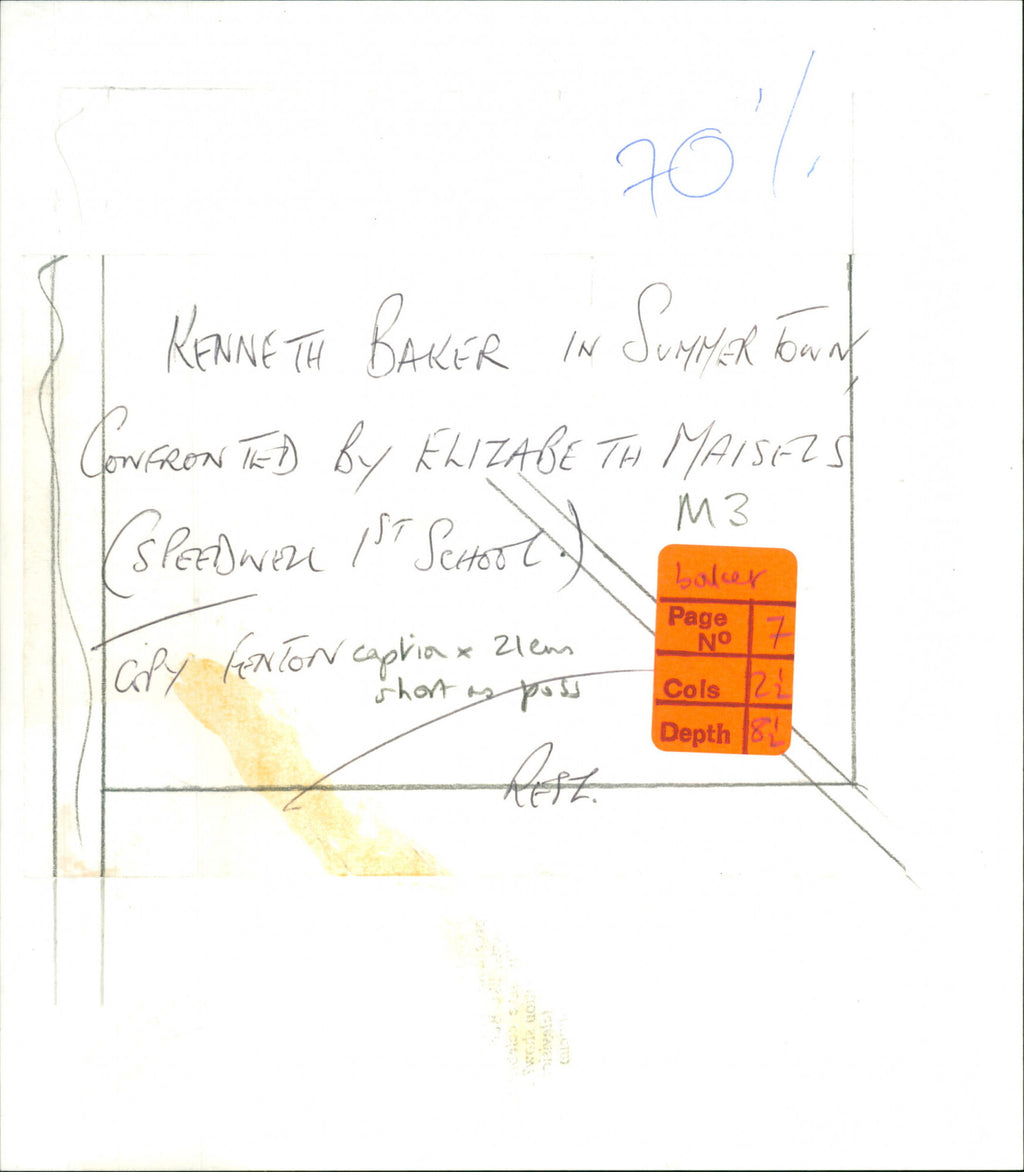 70%
KENNETH BAKER IN SUMMERTOWN,
CONFRONTED BY ELIZABETH MAISELS
(SPEEDWELL 1ST SCHOOL.)
M3
baker
Page No 7
Cols 2½
Depth 8½
COPY FENTON caption x 21ems
short as poss